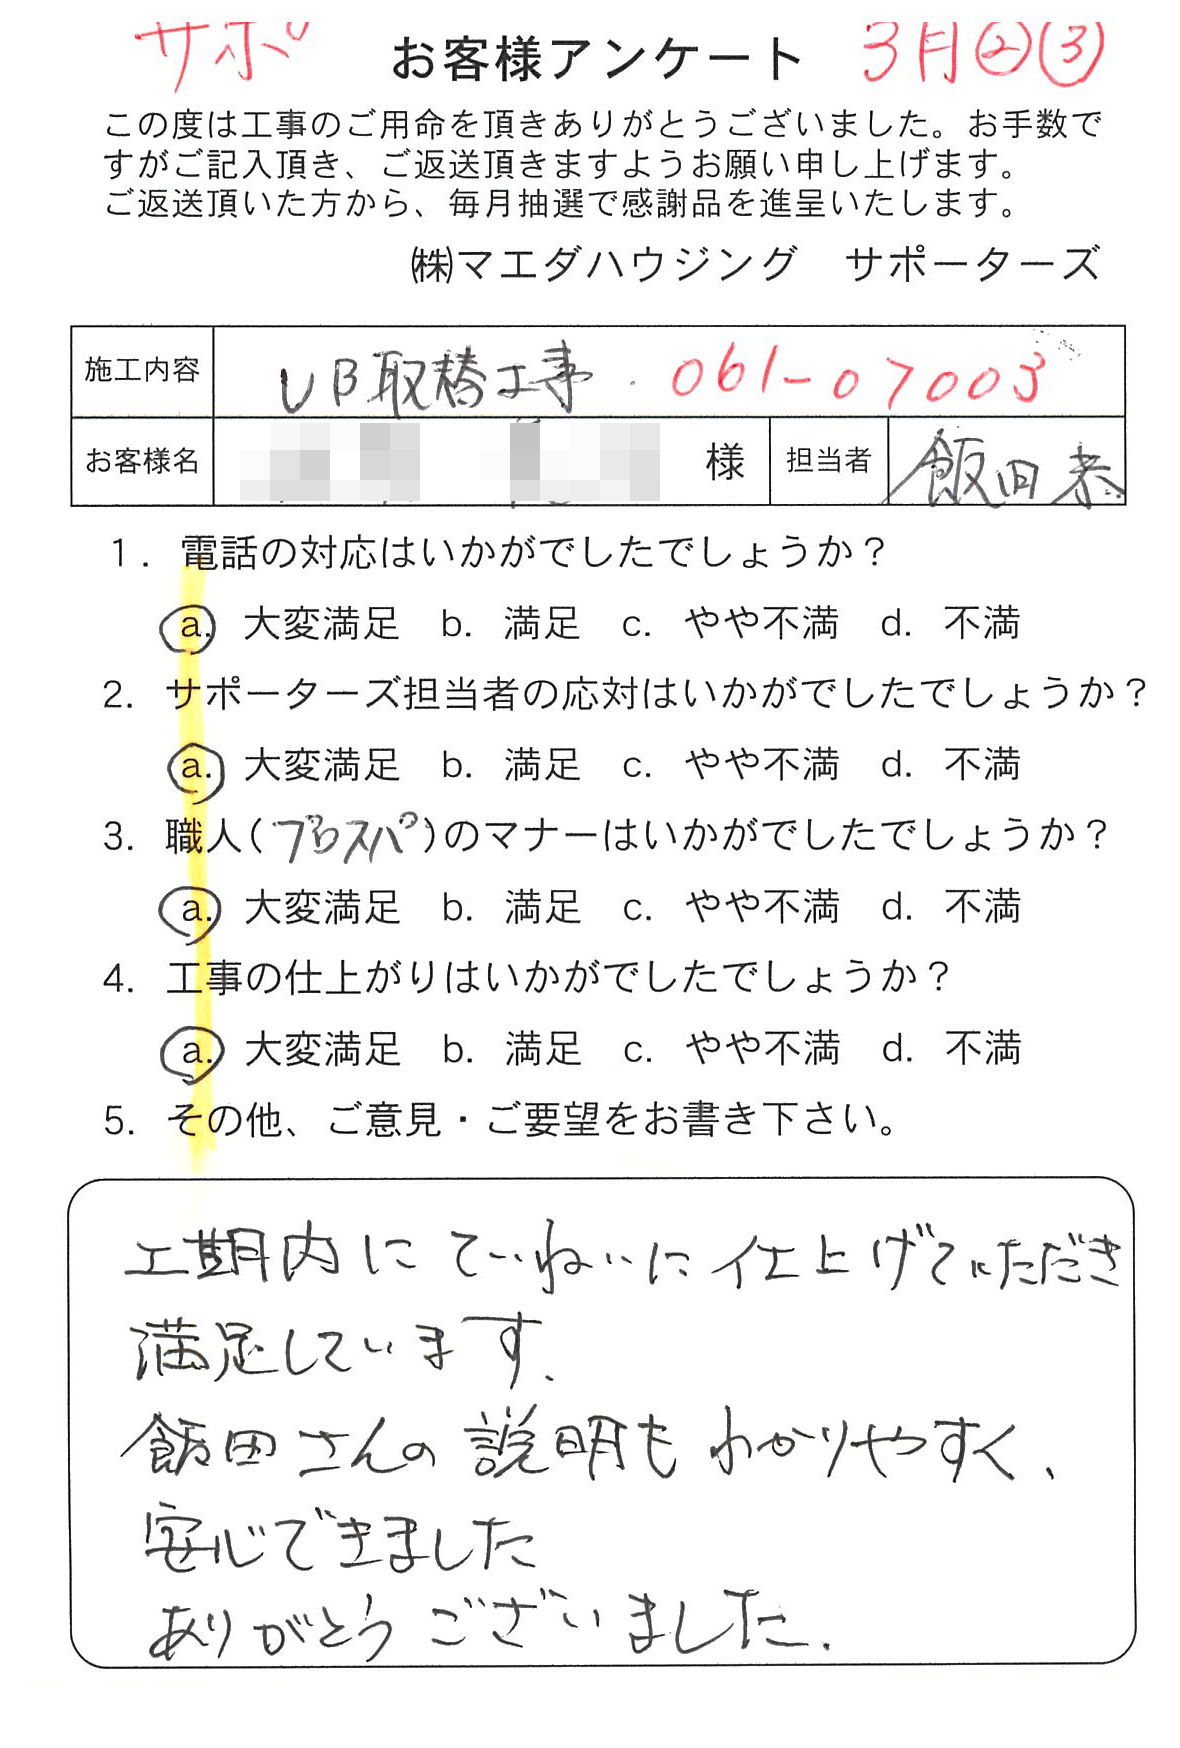 サポ お客様アンケート 3月②③
この度は工事のご用命を頂きありがとうございました。お手数で
すがご記入頂き、ご返送頂きますようお願い申し上げます。
ご返送頂いた方から、毎月抽選で感謝品を進呈いたします。
㈱マエダハウジング　サポーターズ
施工内容 UB取替工事 061-07003
お客様名 様 担当者 飯田恭
1. 電話の対応はいかがでしたでしょうか？
a. 大変満足 b. 満足 c. やや不満 d. 不満
2. サポーターズ担当者の応対はいかがでしたでしょうか？
a. 大変満足 b. 満足 c. やや不満 d. 不満
3. 職人(プロスパ)のマナーはいかがでしたでしょうか？
a. 大変満足 b. 満足 c. やや不満 d. 不満
4. 工事の仕上がりはいかがでしたでしょうか？
a. 大変満足 b. 満足 c. やや不満 d. 不満
5. その他、ご意見・ご要望をお書き下さい。
工期内にていねいに仕上げていただき
満足しています.
飯田さんの説明もわかりやすく、
安心できました
ありがとうございました.